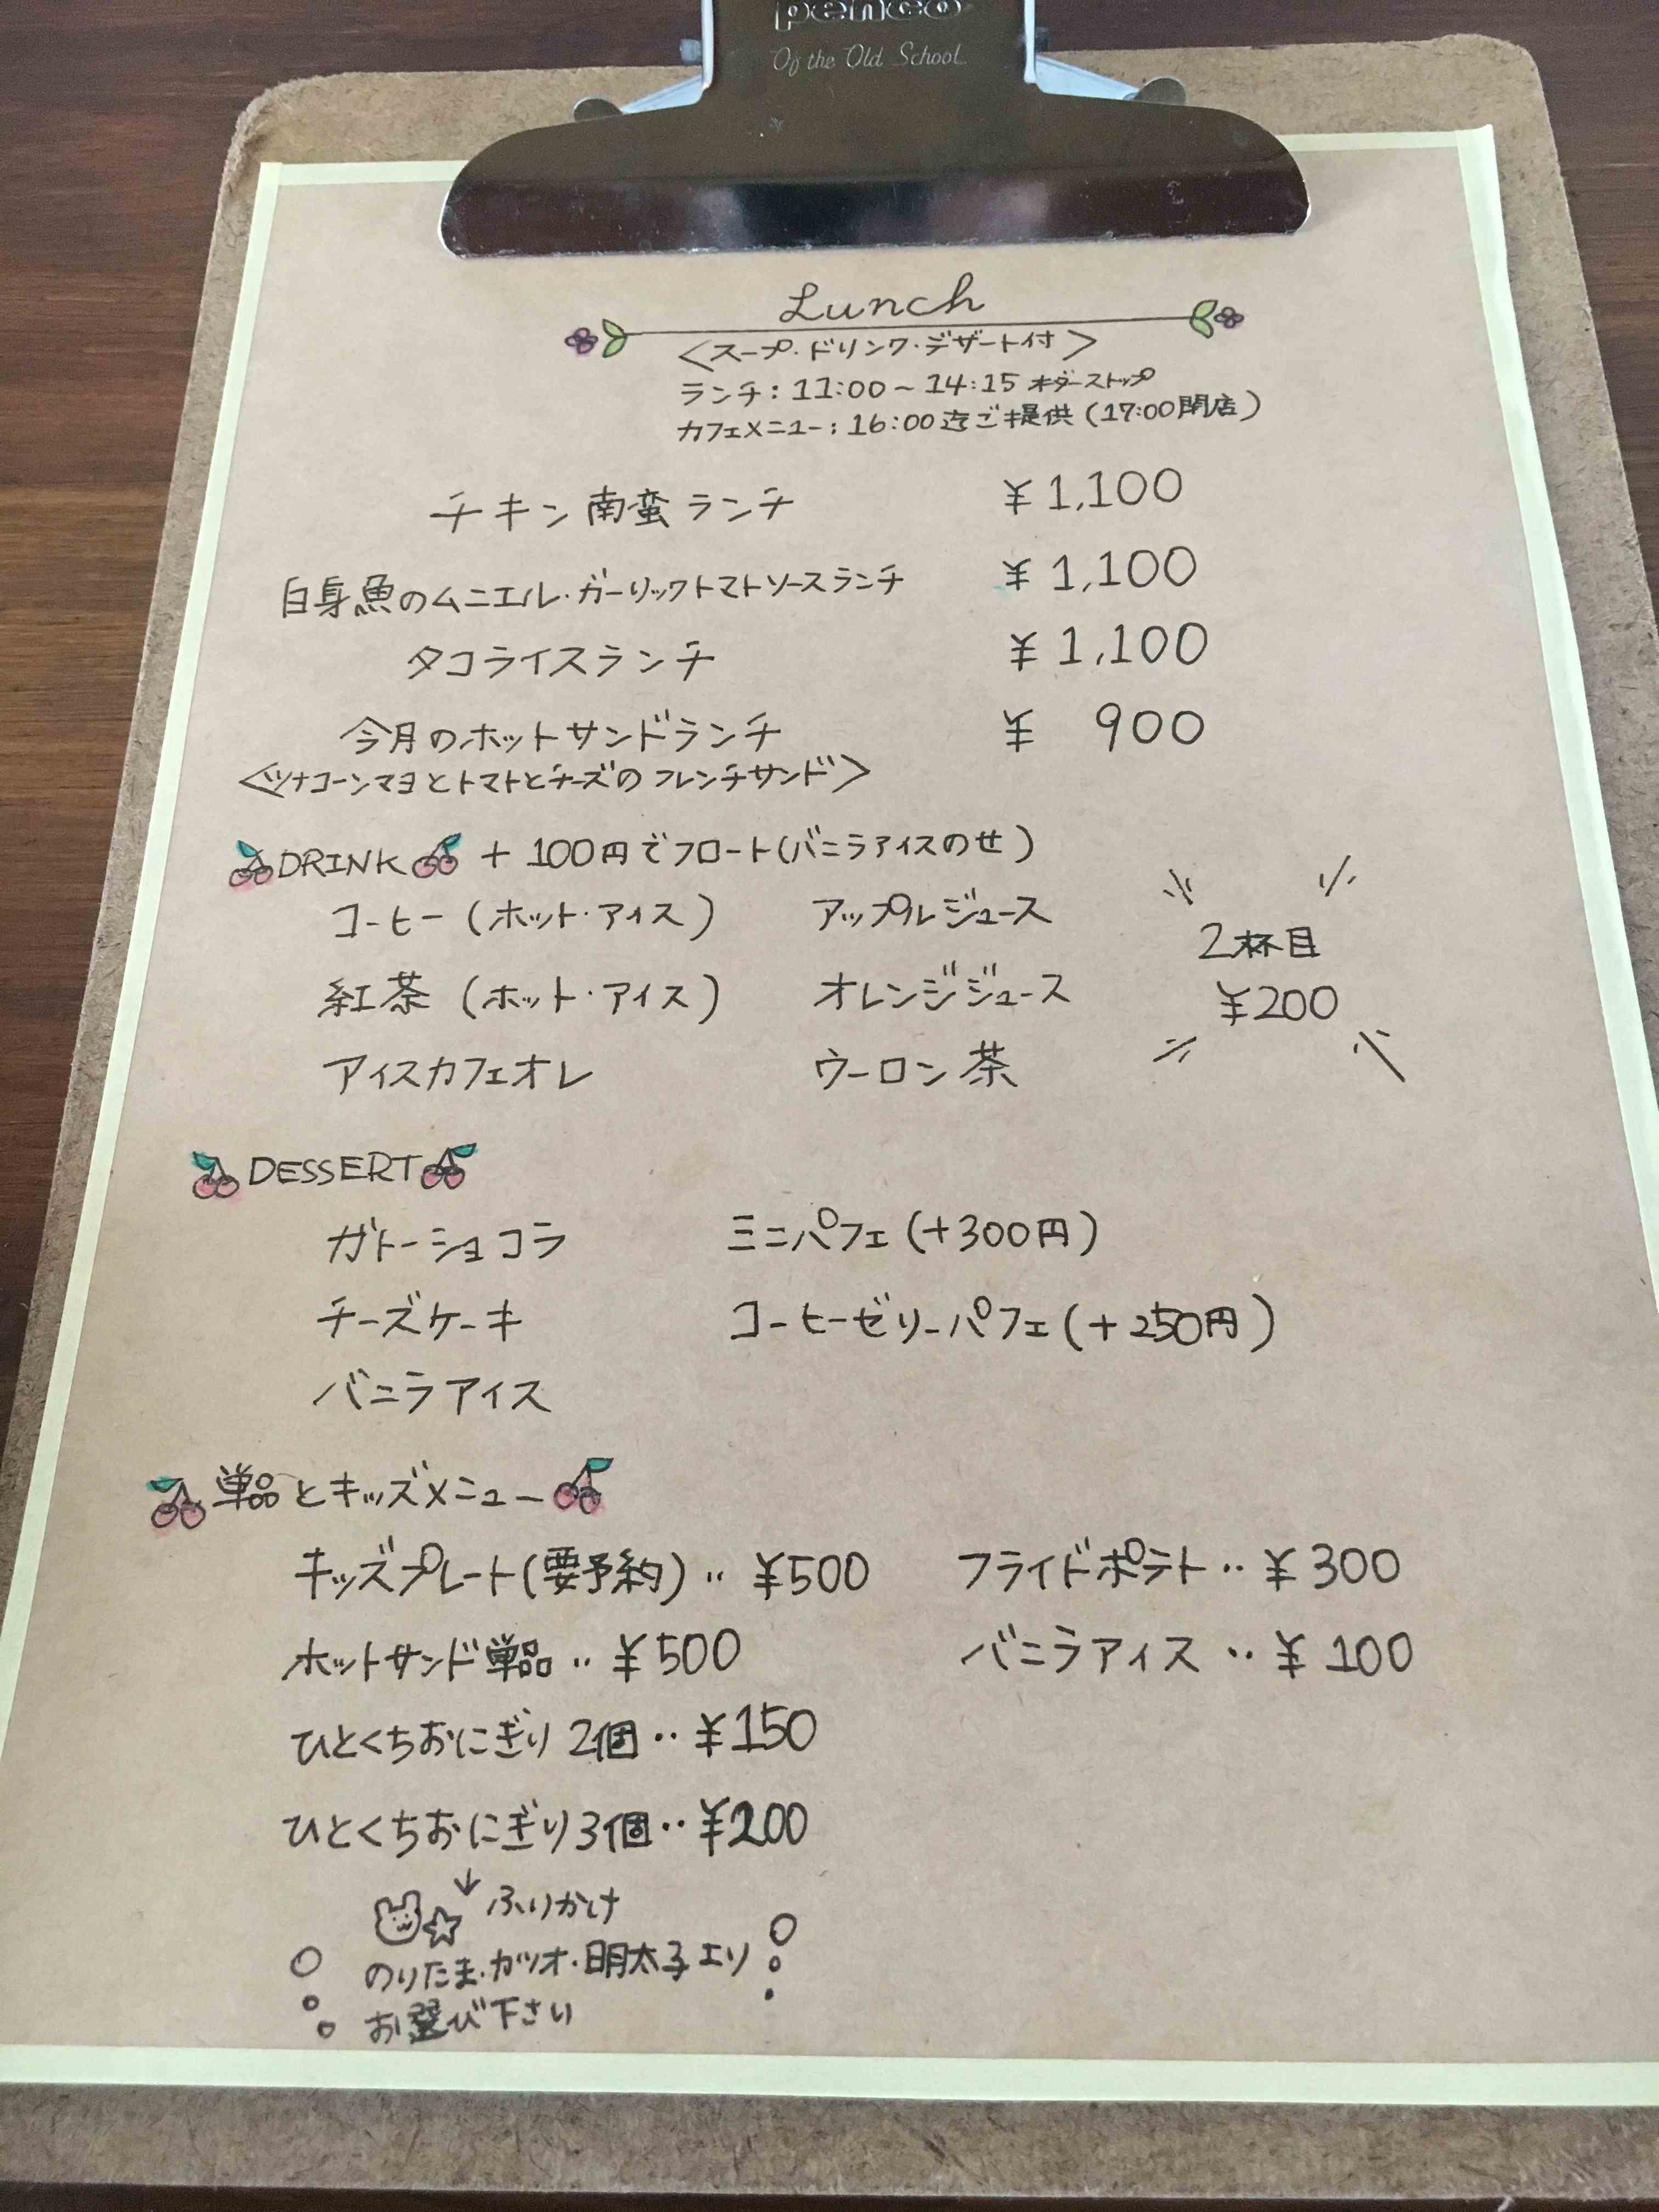 penco
Of the Old School
Lunch
<スープ・ドリンク・デザート付>
ランチ：11:00〜14:15 オーダーストップ
カフェメニュー：16:00迄ご提供（17:00閉店）
チキン南蛮ランチ ¥1,100
白身魚のムニエル・ガーリックトマトソースランチ ¥1,100
タコライスランチ ¥1,100
今月のホットサンドランチ ¥ 900
<ツナコーンマヨとトマトとチーズのフレンチサンド>
DRINK +100円でフロート（バニラアイスのせ）
コーヒー（ホット・アイス） アップルジュース
紅茶（ホット・アイス） オレンジジュース
アイスカフェオレ ウーロン茶
2杯目
¥200
DESSERT
ガトーショコラ ミニパフェ（+300円）
チーズケーキ コーヒーゼリーパフェ（+250円）
バニラアイス
単品とキッズメニュー
キッズプレート（要予約）‥¥500 フライドポテト‥¥300
ホットサンド単品‥¥500 バニラアイス‥¥100
ひとくちおにぎり2個‥¥150
ひとくちおにぎり3個‥¥200
↓ふりかけ
のりたま・カツオ・明太子より
お選び下さい